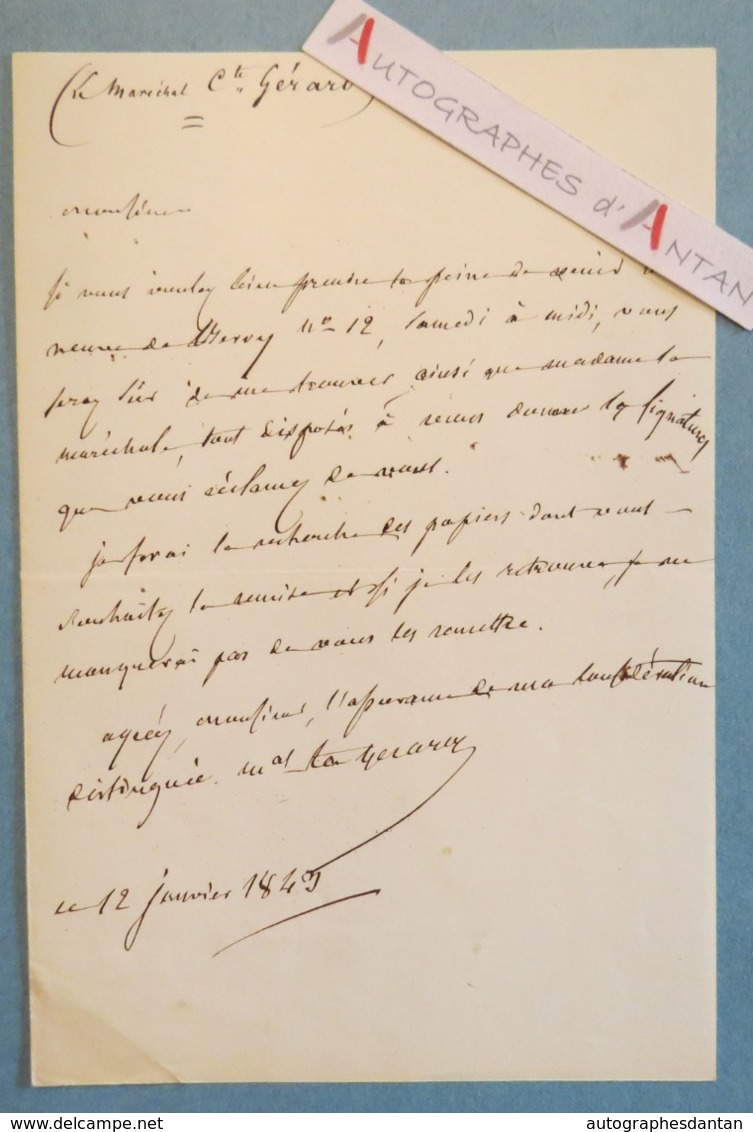 (Le Maréchal Cte Gérard)
AUTOGRAPHES d'ANTAN
monsieur
si vous voulez bien prendre la peine de venir
neuve de Berry no 12, samedi à midi, vous
serez sûr de me trouver, ainsi que madame la
maréchale, tout disposés à vous donner la signature
que vous réclamez de nous.
je ferai la recherche des papiers dont vous
souhaitez la remise et si je les retrouve, je ne
manquerai pas de vous les remettre.
agréez, monsieur, l'assurance de ma considération
distinguée. mal Cte Gerard
le 12 janvier 1843
www.delcampe.net
autographesdantan